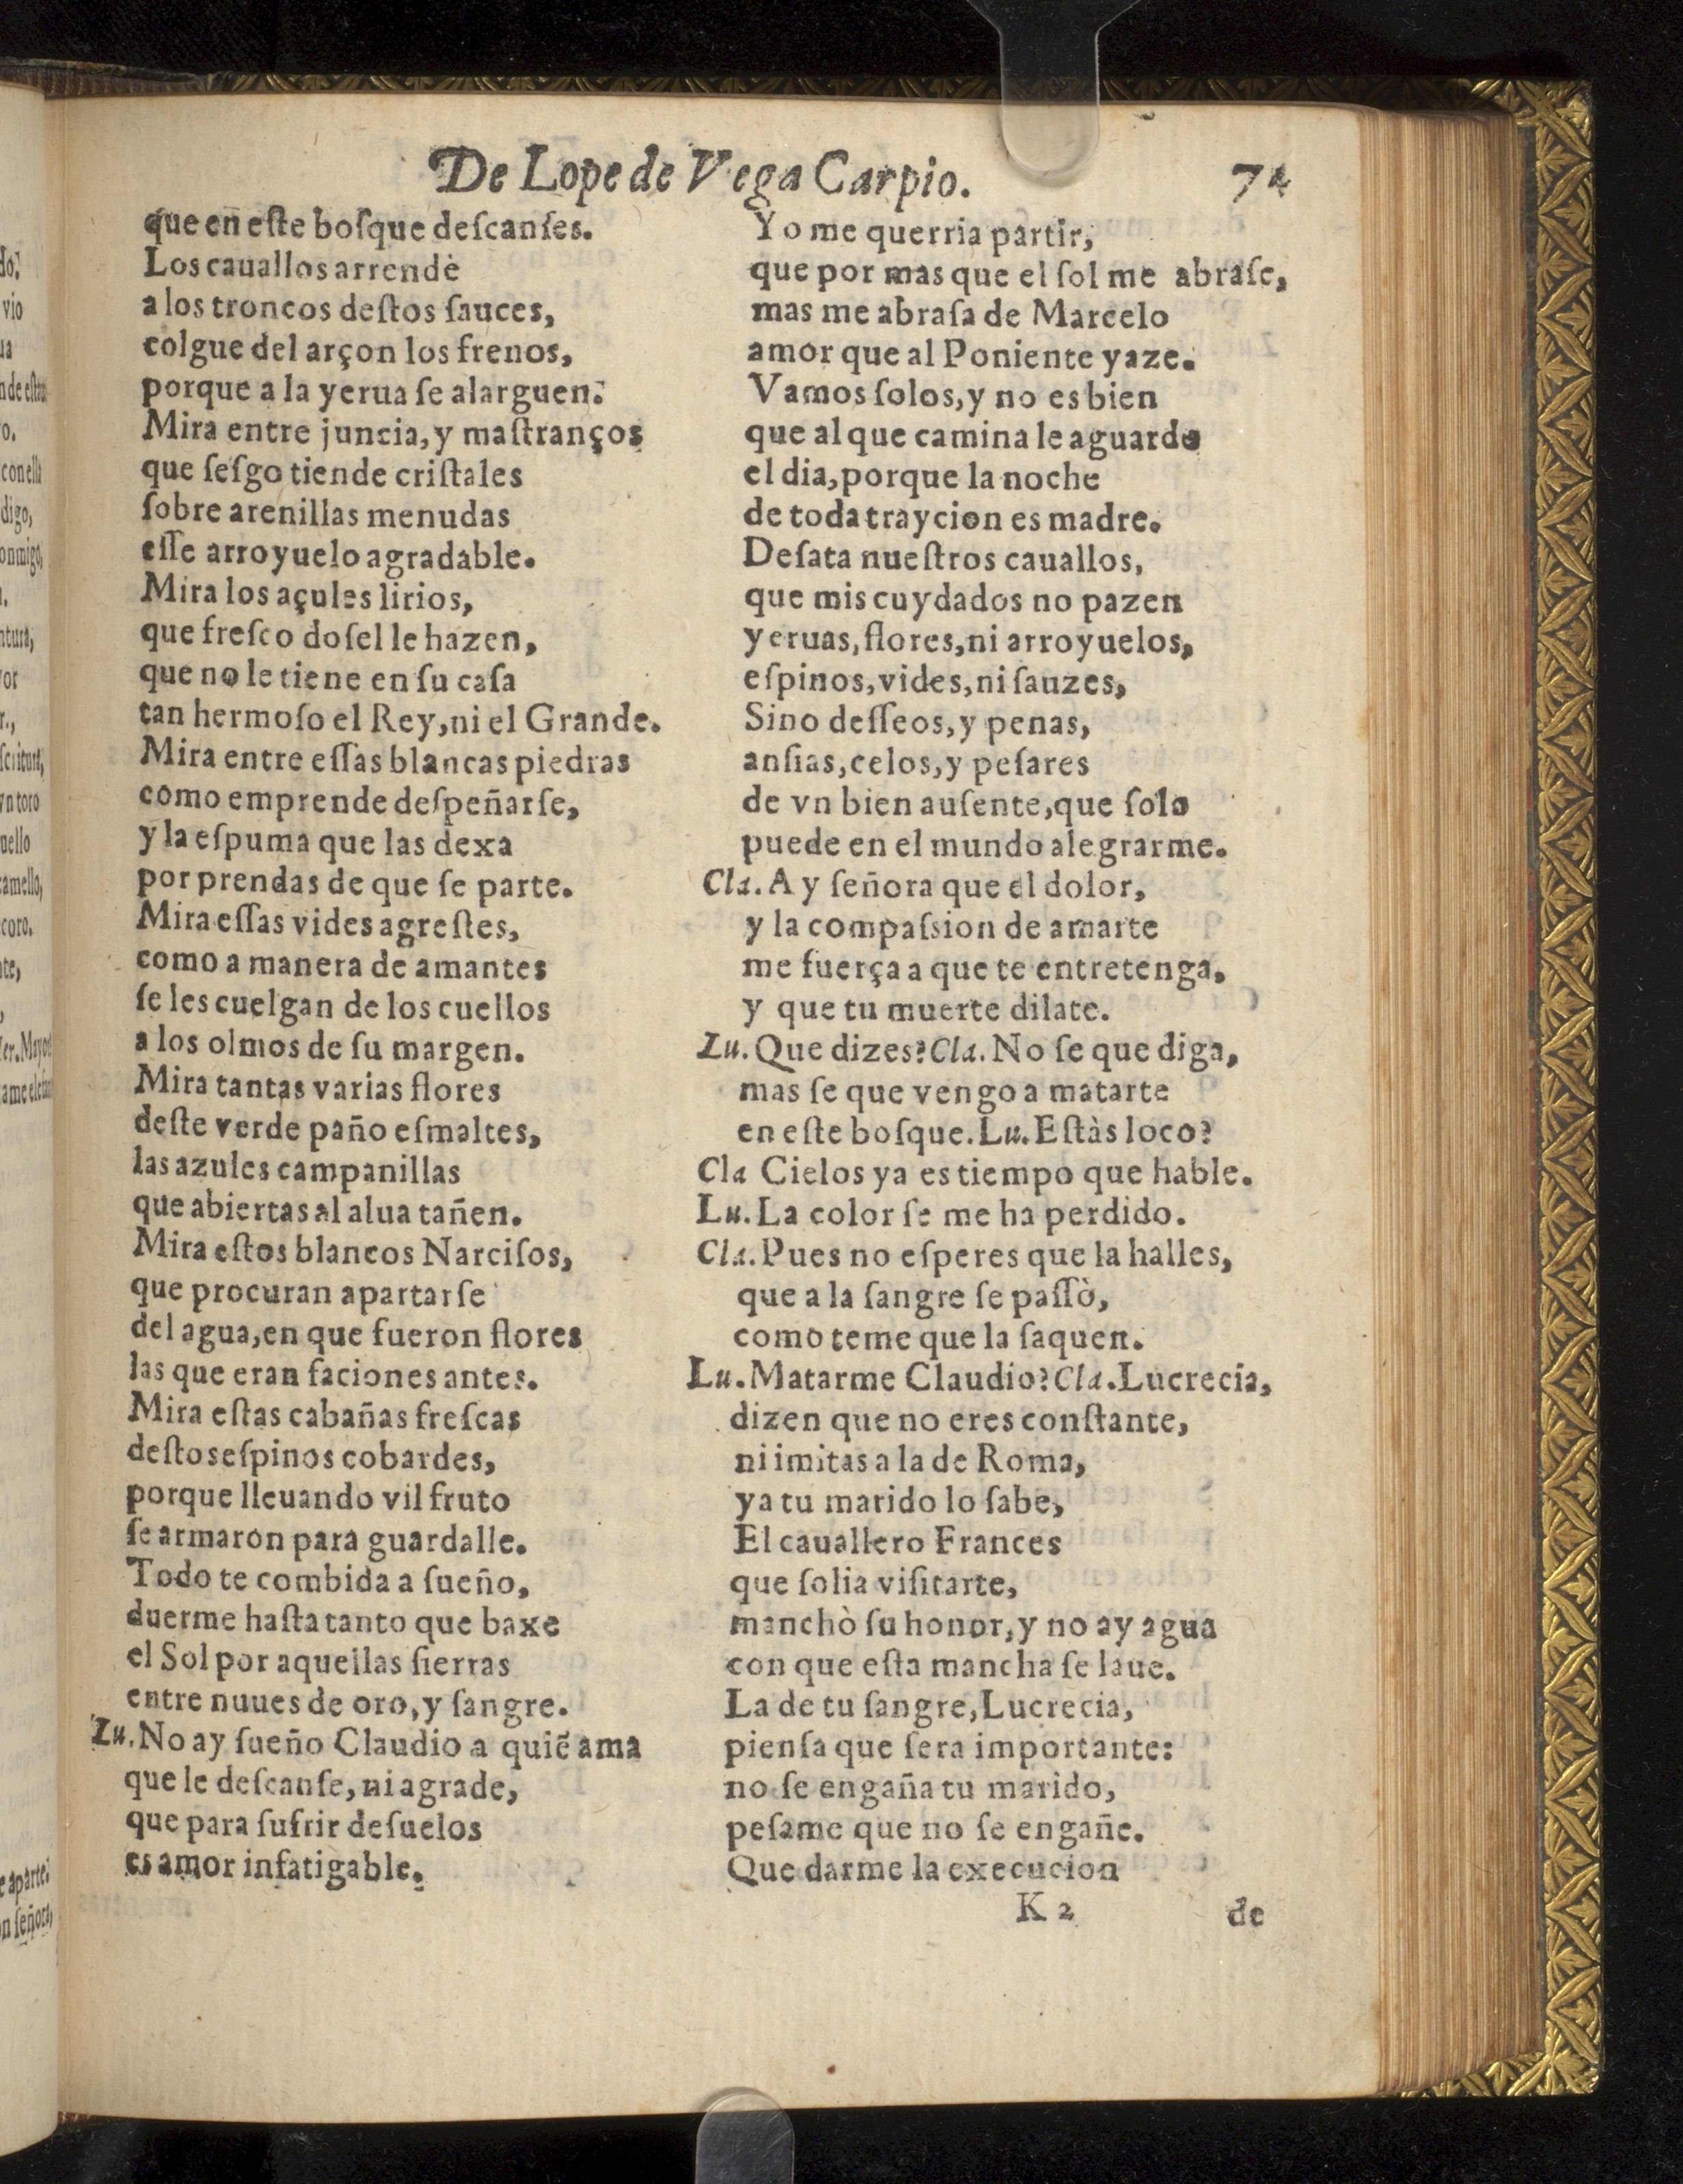 De Lope de Vega Carpio. 74
que en eſte boſque deſcanſes.
Los cauallos arrendè
a los troncos deſtos ſauces,
colgue del arçon los frenos,
porque a la yerua ſe alarguen.
Mira entre juncia, y maſtranços
que ſeſgo tiende criſtales
ſobre arenillas menudas
eſſe arroyuelo agradable.
Mira los açules lirios,
que freſco doſel le hazen,
que no le tiene en ſu caſa
tan hermoſo el Rey, ni el Grande.
Mira entre eſſas blancas piedras
como emprende deſpeñarſe,
y la eſpuma que las dexa
por prendas de que ſe parte.
Mira eſſas vides agreſtes,
como a manera de amantes
ſe les cuelgan de los cuellos
a los olmos de ſu margen.
Mira tantas varias flores
deſte verde paño eſmaltes,
las azules campanillas
que abiertas al alua tañen.
Mira eſtos blancos Narciſos,
que procuran apartarſe
del agua, en que fueron flores
las que eran faciones antes.
Mira eſtas cabañas freſcas
deſtos eſpinos cobardes,
porque lleuando vil fruto
ſe armaron para guardalle.
Todo te combida a ſueño,
duerme haſta tanto que baxe
el Sol por aquellas ſierras
entre nuues de oro, y ſangre.
Lu. No ay ſueño Claudio a quiẽ ama
que le deſcanſe, ni agrade,
que para ſufrir deſuelos
es amor infatigable.
Yo me querria partir,
que por mas que el ſol me abraſe,
mas me abraſa de Marcelo
amor que al Poniente yaze.
Vamos ſolos, y no es bien
que al que camina le aguarde
el dia, porque la noche
de toda traycion es madre.
Deſata nueſtros cauallos,
que mis cuydados no pazen
yeruas, flores, ni arroyuelos,
eſpinos, vides, ni ſauzes,
Sino deſſeos, y penas,
anſias, celos, y peſares
de vn bien auſente, que ſolo
puede en el mundo alegrarme.
Cla. Ay ſeñora que el dolor,
y la compaſsion de amarte
me fuerça a que te entretenga,
y que tu muerte dilate.
Lu. Que dizes? Cla. No ſe que diga,
mas ſe que vengo a matarte
en eſte boſque. Lu. Eſtàs loco?
Cla Cielos ya es tiempo que hable.
Lu. La color ſe me ha perdido.
Cla. Pues no eſperes que la halles,
que a la ſangre ſe paſſò,
como teme que la ſaquen.
Lu. Matarme Claudio? Cla. Lucrecia,
dizen que no eres conſtante,
ni imitas a la de Roma,
ya tu marido lo ſabe,
El cauallero Frances
que ſolia viſitarte,
manchò ſu honor, y no ay agua
con que eſta mancha ſe laue.
La de tu ſangre, Lucrecia,
pienſa que ſera importante:
no ſe engaña tu marido,
peſame que no ſe engañe.
Que darme la execucion
K 2 de